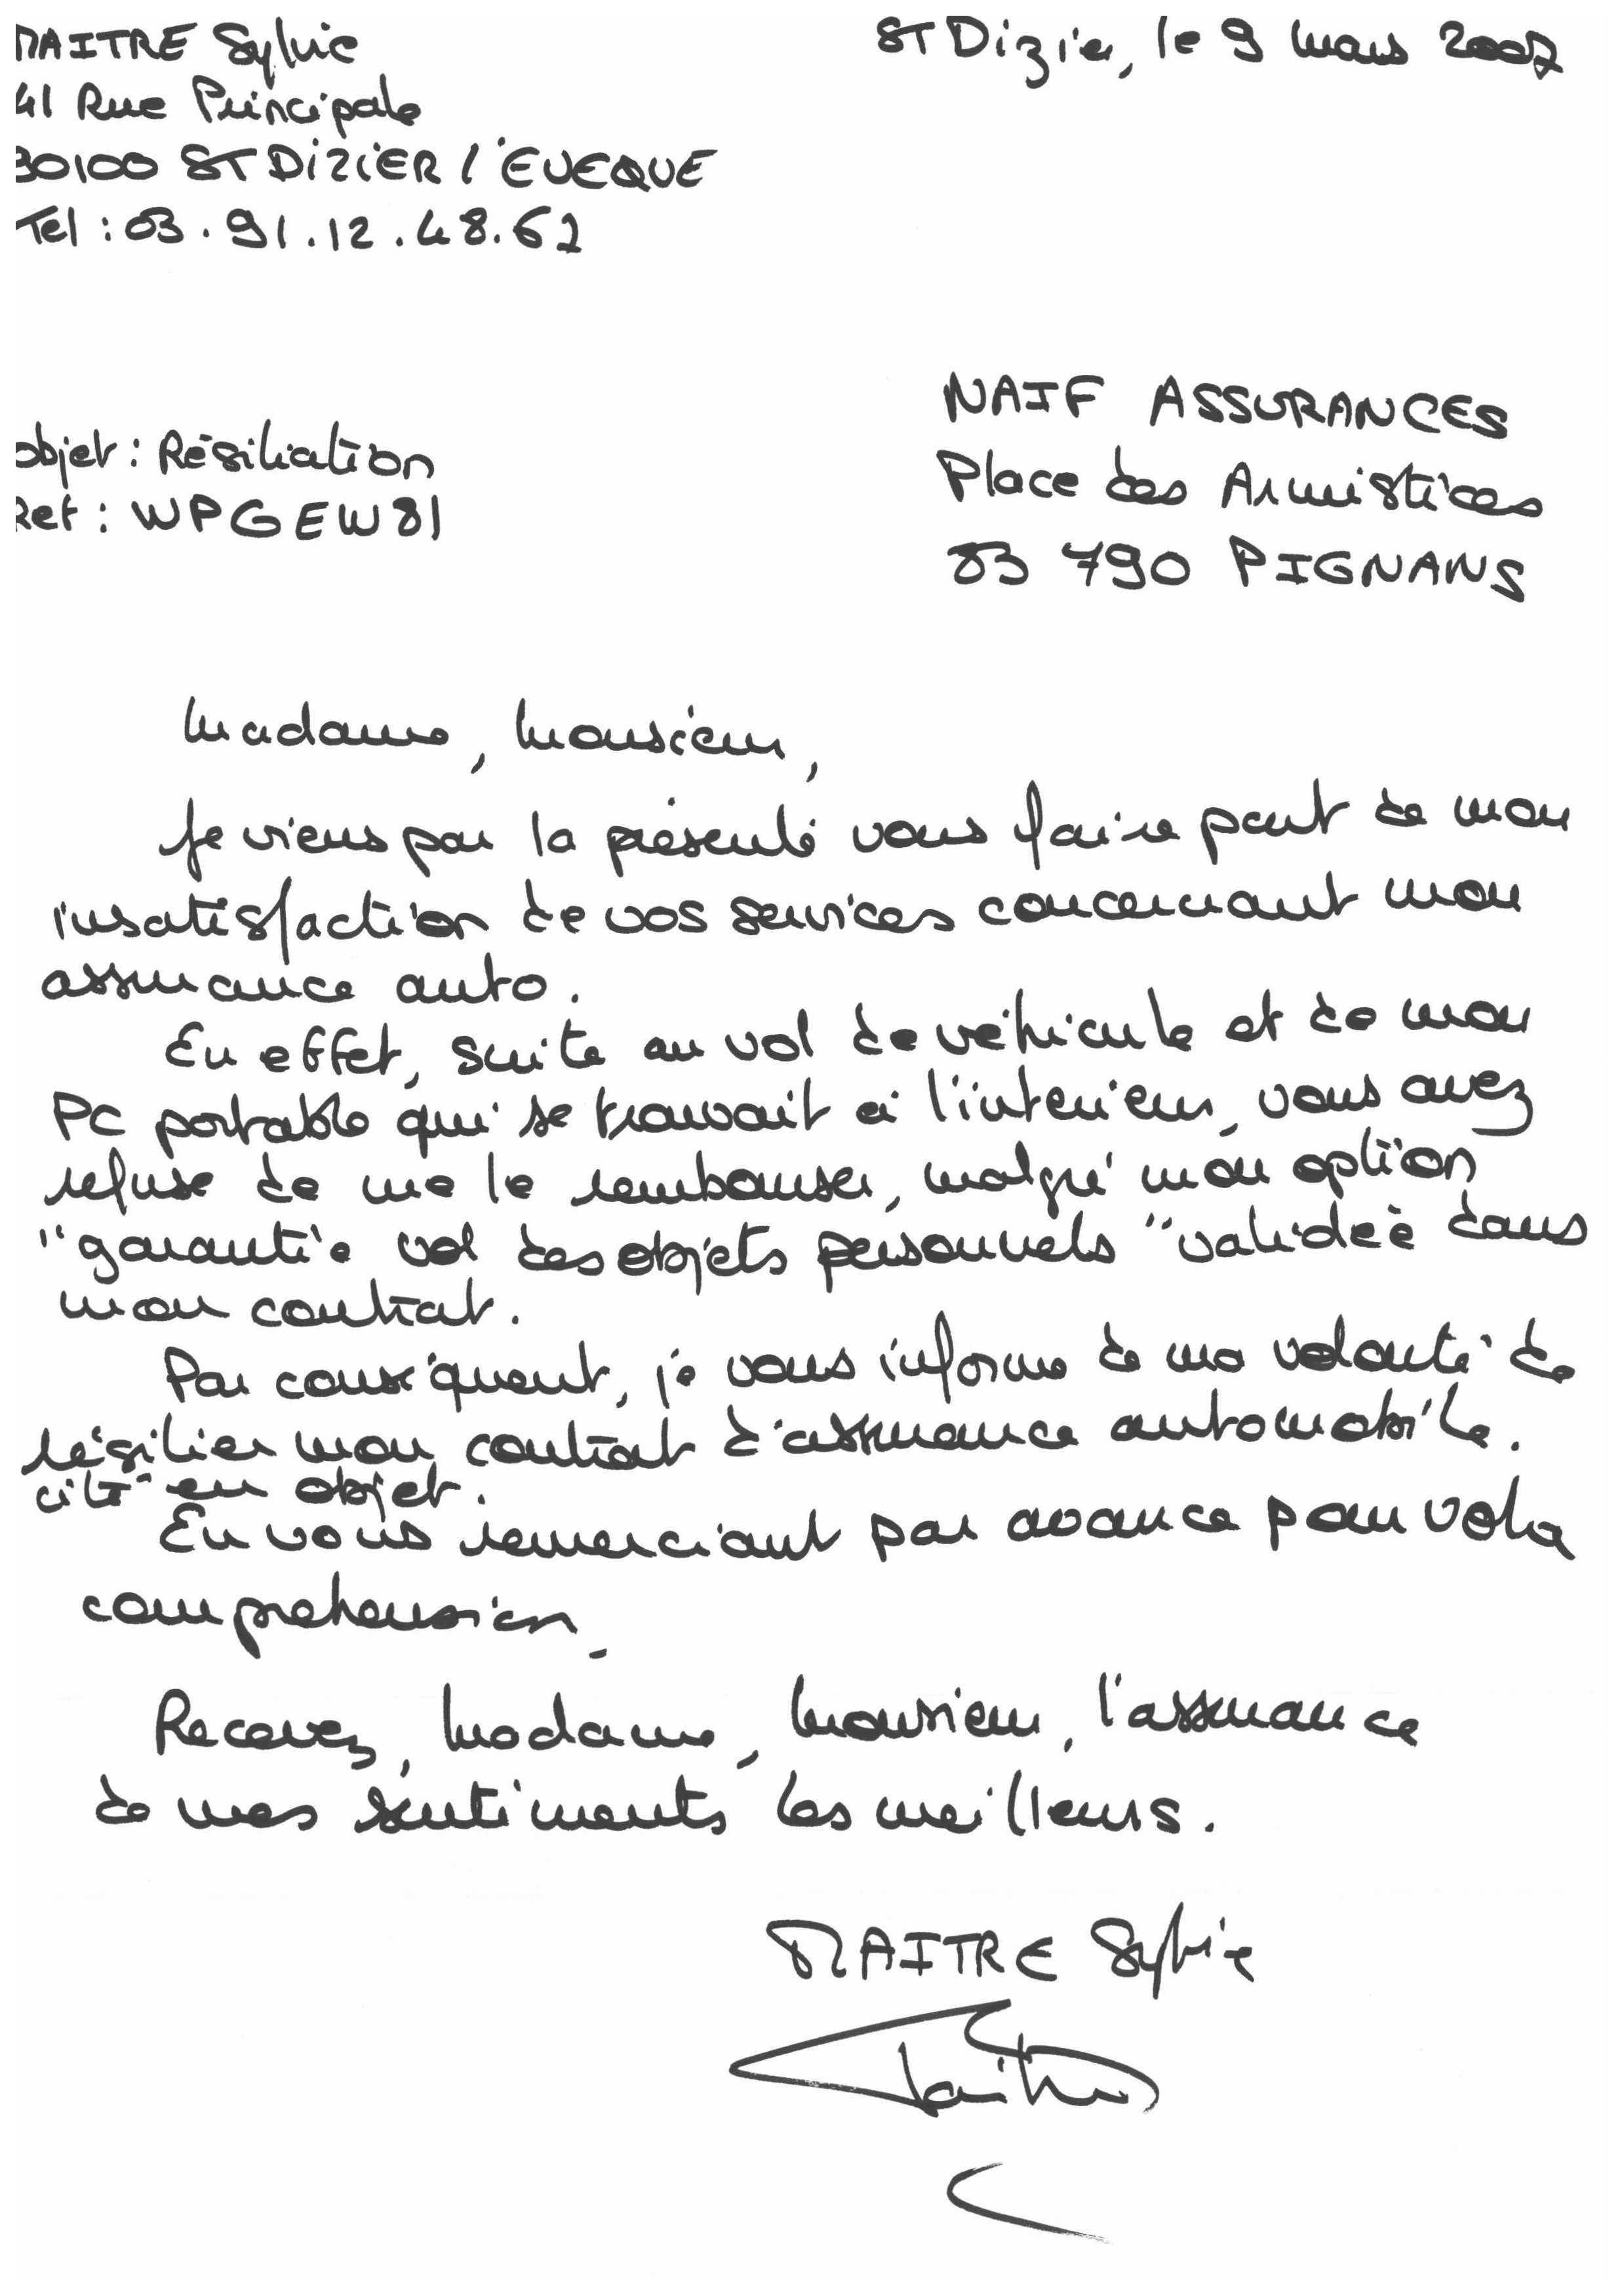 MAITRE Sylvie
St Dizier, le 9 mars 2007
41 Rue Principale
30100 ST DIZIER l'EVEQUE
Tel : 03.91.12.48.62
NAIF ASSURANCES
objet : Résiliation
Place des Armistices
Ref : WPGEW81
83 790 PIGNANS
Madame, Monsieur,
Je viens par la présente vous faire part de mon
insatisfaction de vos services concernant mon
assurance auto.
En effet, suite au vol de véhicule et de mon
PC portable qui se trouvait à l'intérieur, vous avez
refuse de me le rembourser, malgré mon option
"garantie vol des objets personnels" validée dans
mon contrat.
Par conséquent, je vous informe de ma volonté de
résilier mon contrat d'assurance automobile.
cité en objet.
En vous remerciant par avance pour votre
comprehension.
Recevez, Madame, Monsieur, l'assurance
de mes sentiments les meilleurs.
MAITRE Sylvie
Maitre